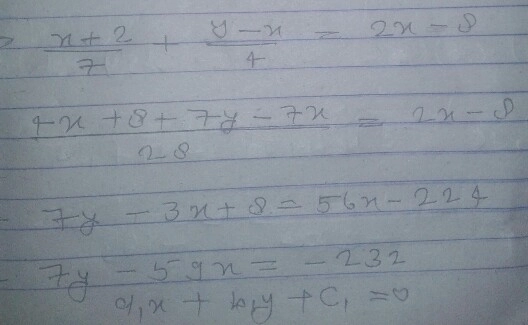 (x + 2)/7 + (y - x)/4 = 2x - 8
(4x + 8 + 7y - 7x)/28 = 2x - 8
7y - 3x + 8 = 56x - 224
7y - 59x = -232
a₁x + b₁y + C₁ = 0